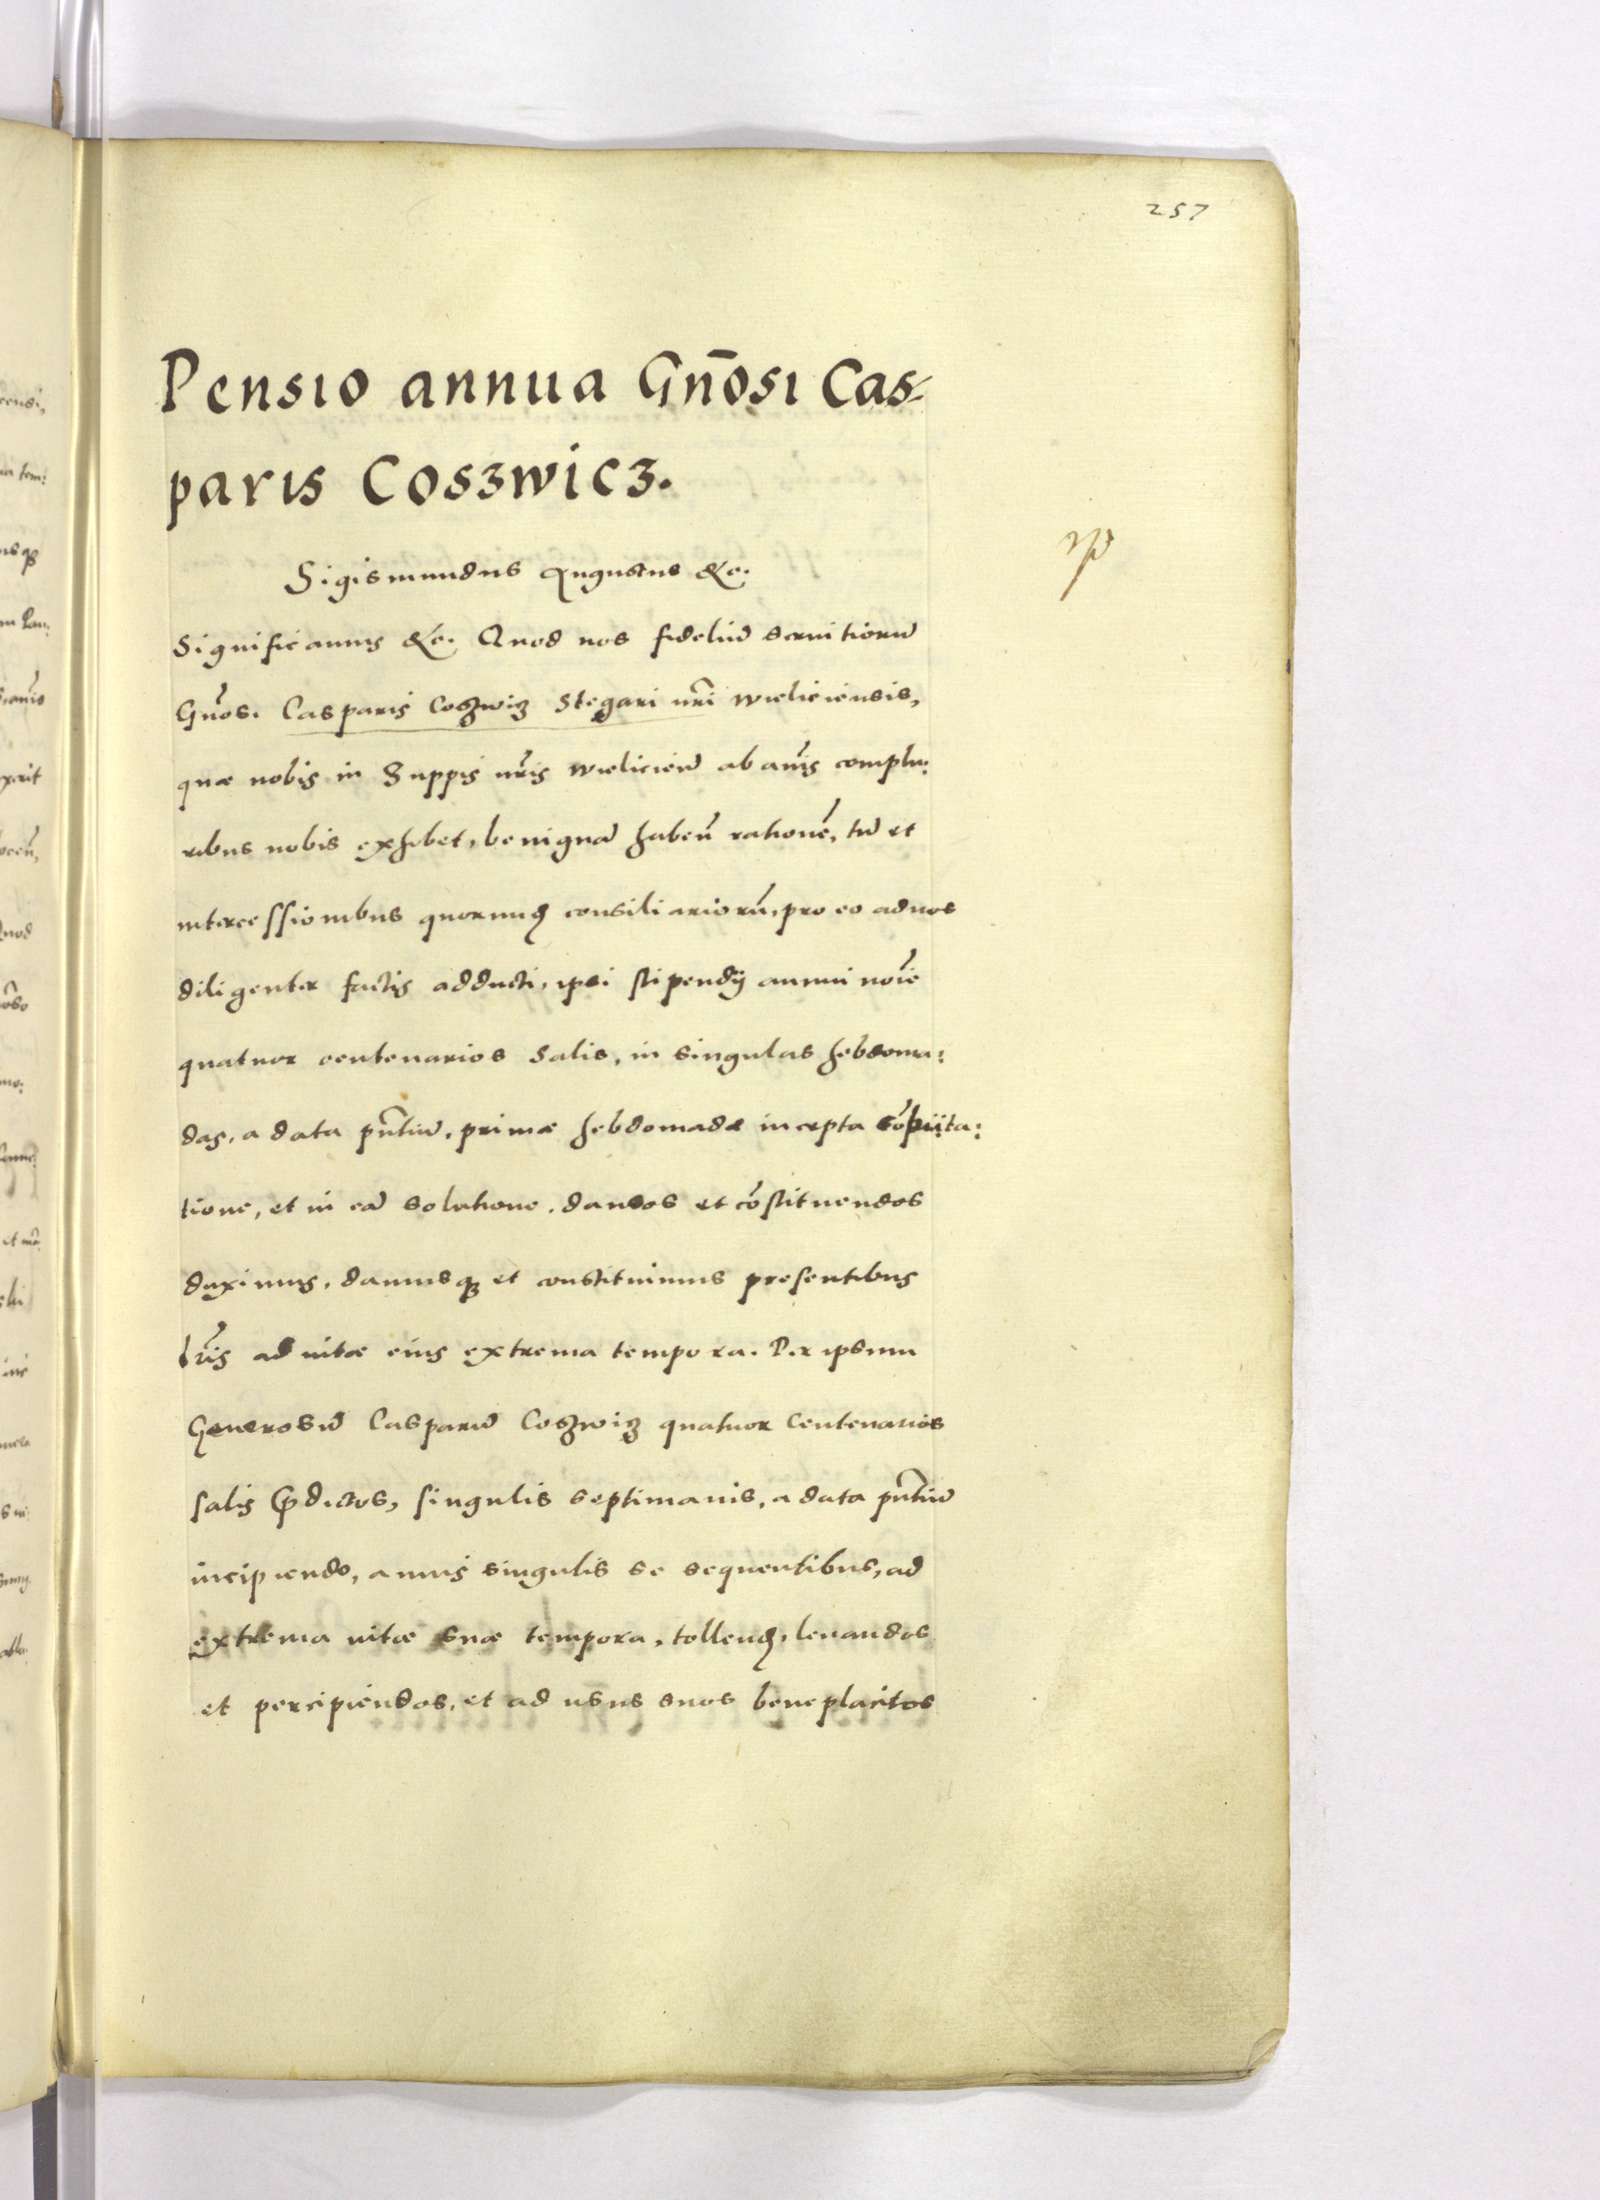 257
Pensio annua Gnōsi Cas-
paris Coszwicz.
Sigismundus Augustus &c.
Significamus &c. Quod nos fideliū seruitiorū
Gnōs. Casparis Coszwiz Stegari nr̄i wieliciensis,
quae nobis in Suppis nr̄is wielicień ab anīs complu:
ribus nobis exhibet, benignā habeñ rationē, tū et
intercessionibus quorund consiliariorū, pro eo ad nos
diligenter factis adducti, ipsi stipendij annui noīe
quatuor centenarios salis, in singulas hebdoma:
das, a data pn̄tiū, primae hebdomadae incepta cōputa:
tione, et in eā solutione, dandos et cōstituendos
duximus, damusq et constituimus presentibus
lr̄is ad uitae eius extrema tempora. Per ipsum
Generosū Casparū Coszwiz quatuor Centenarios
salis p̄dictos, singulis septimanis, a data pn̄tiū
incipiendo, annis singulis se sequentibus, ad
extrema uitae suae tempora, tollend, leuandos
et percipiendos, et ad usus suos beneplacitos